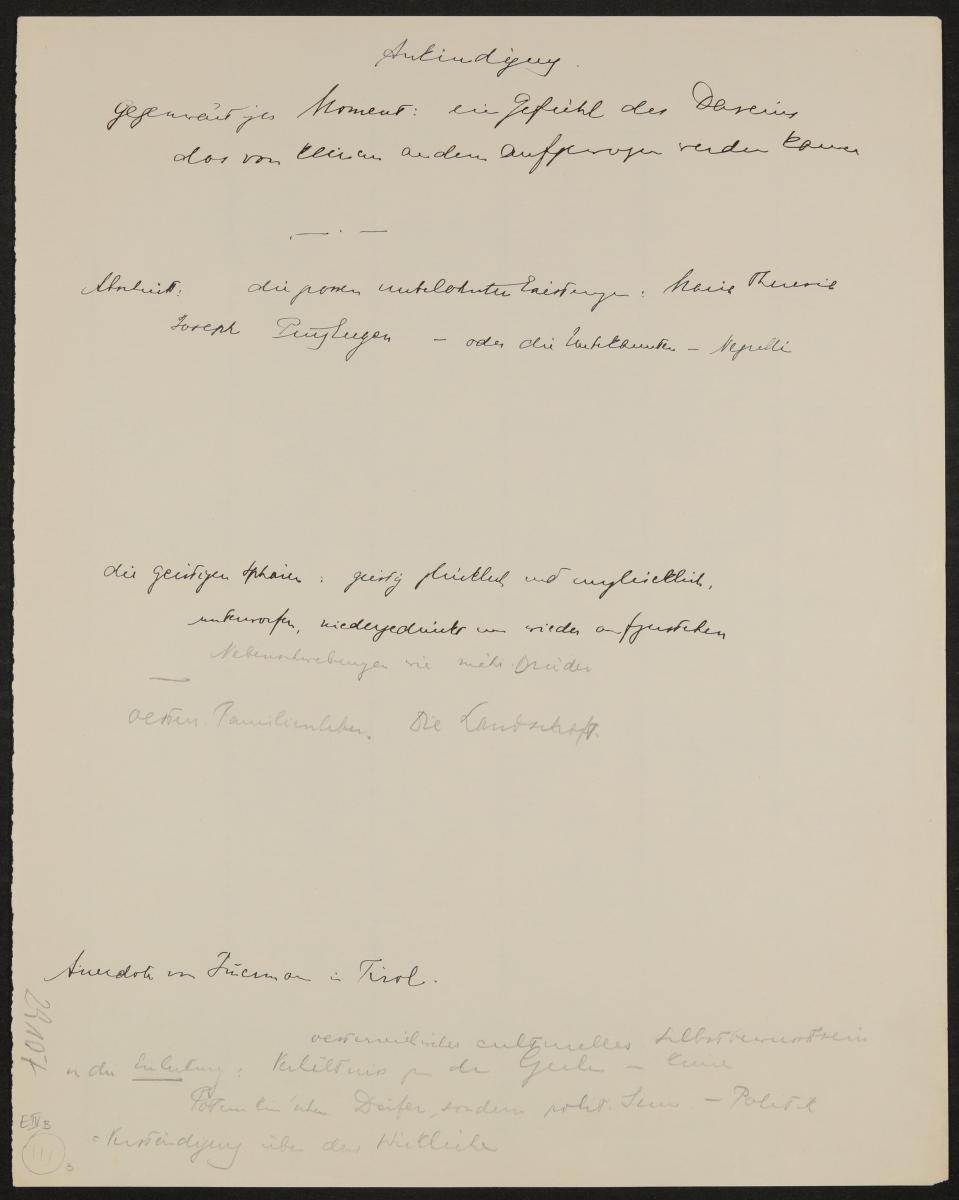 Ankündigung.
Gegenwärtiges Moment: ein Gefühl des Daseins
das von keinem andern aufgewogen werden kann
Abschnitt: die grossen unbelohnten Leistungen: Maria Theresia
Joseph Prinz Eugen – oder die Unbekannten – Negrelli
die geistigen Sphären: geistig glücklich und unglücklich,
unterworfen, niedergedrückt um wieder aufzustehen
Nebenschwebungen wie
oesterr. Familienleben. Die Landschaft.
Anecdote von in Tirol.
oesterreichisches culturelles Selbstbewusstsein
in der Einleitung: Verhältnis zu der – keine
Potemkin'schen Dörfer, sondern – Politik
= Verständigung über das Wirkliche
29.107
E IV B
111
3